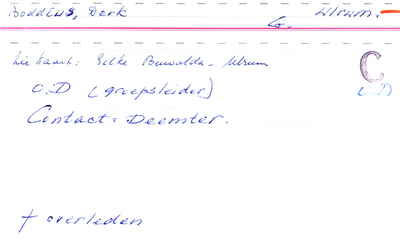 Boddéus, Derk G. Ulrum.
zie kaart: Eelke Buwalda - Ulrum
C
O.D (groepsleider) O.D
Contact = Deemter.
† overleden